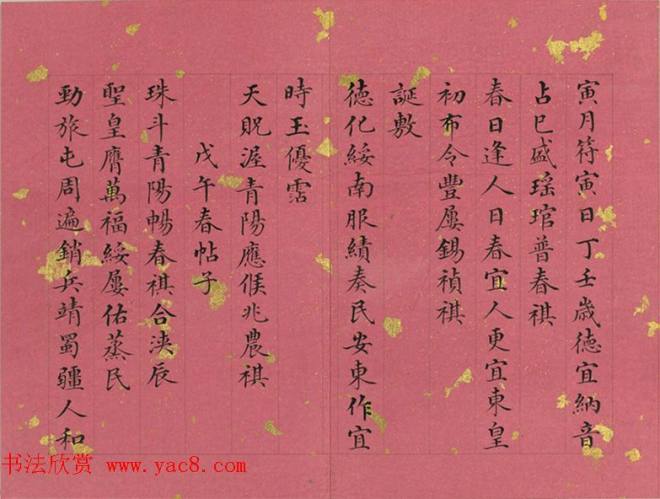 寅月符寅日丁壬歲德宜納音
占已盛瑤琯普春祺
春日逢人日春宜人更宜東皇
初布令豐屢錫禎祺
誕敷
德化綏南服績奏民安東作宜
時玉優霑
天貺渥青陽應候兆農祺
戊午春帖子
珠斗青陽暢春祺合浹辰
聖皇膺萬福綏屢佑蒸民
勁旅屯周遍銷兵靖蜀疆人和
书法欣赏 www.yac8.com